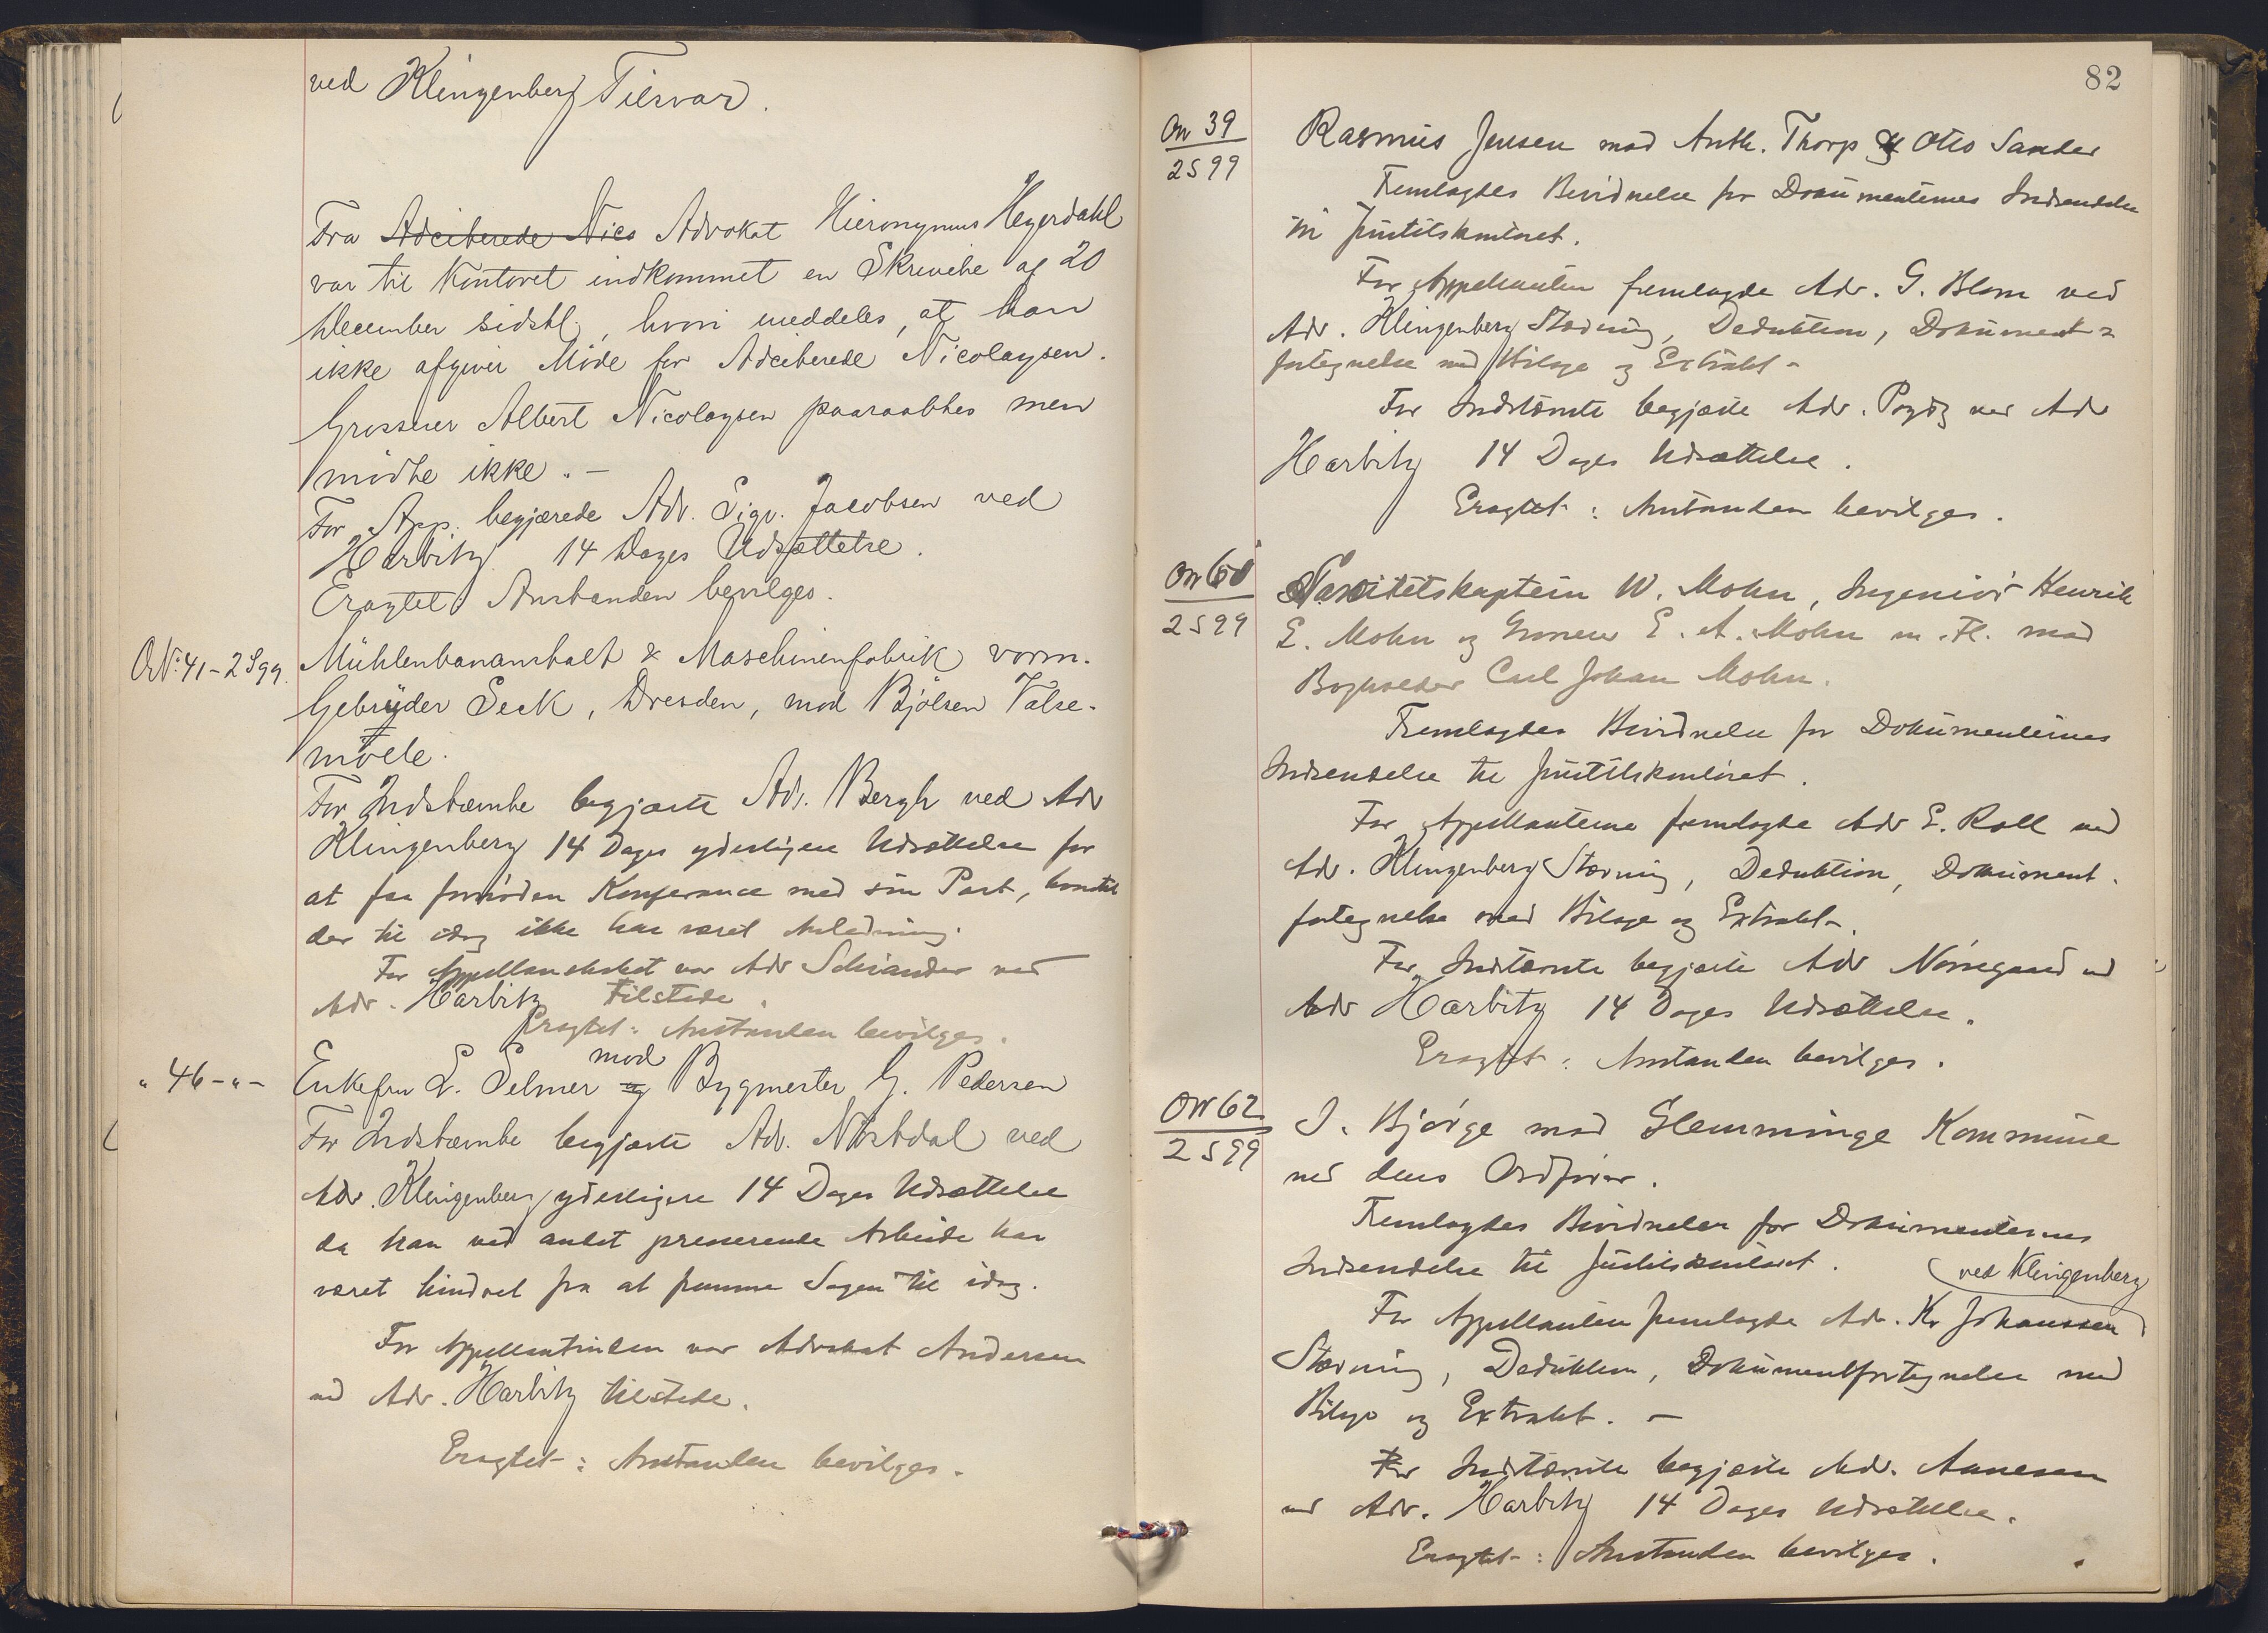 ved Klingenberg Tilsvar.
Fra Adciterede Nico Advokat Hieronymus Heyerdahl
var til Kontoret indkommet en Skrivelse af 20
December sidstl., hvori meddeles, at han
ikke afgiver Möde for Adciterede Nicolaysen.
Grosserer Albert Nicolaysen paaraabtes men
mödte ikke. –
For App. begjærede Adv. Sigv. Jacobsen ved
Harbitz 14 Dages Udsættelse.
Eragtet: Anstanden bevilges.
O.N: 41 – 2S99. Mühlenbauanstalt & Maschinenfabrik vorm.
Gebrüder Seck, Dresden, mod Bjölsen Valse-
mölle.
For Indstævnte begjærte Adv. Bergh ved Adv
Klingenberg 14 Dages yderligere Udsættelse for
at faa fornöden Konferance med sin Part, hvortil
der til idag ikke har været Anledning.
For Appellantskabet var Adv Schiander ved
Adv. Harbitz tilstede.
Eragtet: Anstanden bevilges.
" 46 – " – Enkefru L. Selmer og mod Bygmester G. Pedersen
For Indstævnte begjærte Adv. Nörstdal ved
Adv. Klingenberg yderligere 14 Dages Udsættelse
da han ved andet presserende Arbeide har
været hindret fra at fremme Sagen til idag.
For Appellantinden var Advokat Andersen
ved Adv. Harbitz tilstede.
Eragtet: Anstanden bevilges.
82
ON 39
2S99
Rasmus Jensen mod Anth. Thorp & Otto Sander
Fremlagdes Bevidnelse for Dokumenternes Indsendelse
til Justitskontoret.
For Appellanten fremlagde Adv. G. Blom ved
Adv. Klingenberg Stævning, Deduktion, Dokument-
fortegnelse med Bilage og Extrakt –
For Indstævnte begjærte Adv. ved Adv
Harbitz 14 Dages Udsættelse.
Eragtet: Anstanden bevilges.
ON 60
2S99
Sanitetskaptein W. Mohn, Ingeniör Henrik
E. Mohn og Grosserer E. A. Mohn m. Fl. mod
Bogholder Carl Johan Mohn.
Fremlagdes Bevidnelse for Dokumenternes
Indsendelse til Justitskontoret.
For Appellanterne fremlagde Adv E. Roll ved
Adv. Klingenberg Stævning, Deduktion, Dokument-
fortegnelse med Bilage og Extrakt –
For Indstævnte begjærte Adv Nörregaard ved
Adv Harbitz 14 Dages Udsættelse.
Eragtet: Anstanden bevilges.
ON 62
2S99
I. Björge mod Glemminge Kommune
ved dens Ordförer.
Fremlagdes Bevidnelse for Dokumenternes
Indsendelse til Justitskontoret.
ved Klingenberg
For Appellanten fremlagde Adv. Kr Johanssen
Stævning, Deduktion, Dokumentfortegnelse med
Bilage og Extrakt. –
For Indstævnte begjærte Adv. Annesen
ved Adv. Harbitz 14 Dages Udsættelse.
Eragtet: Anstanden bevilges.